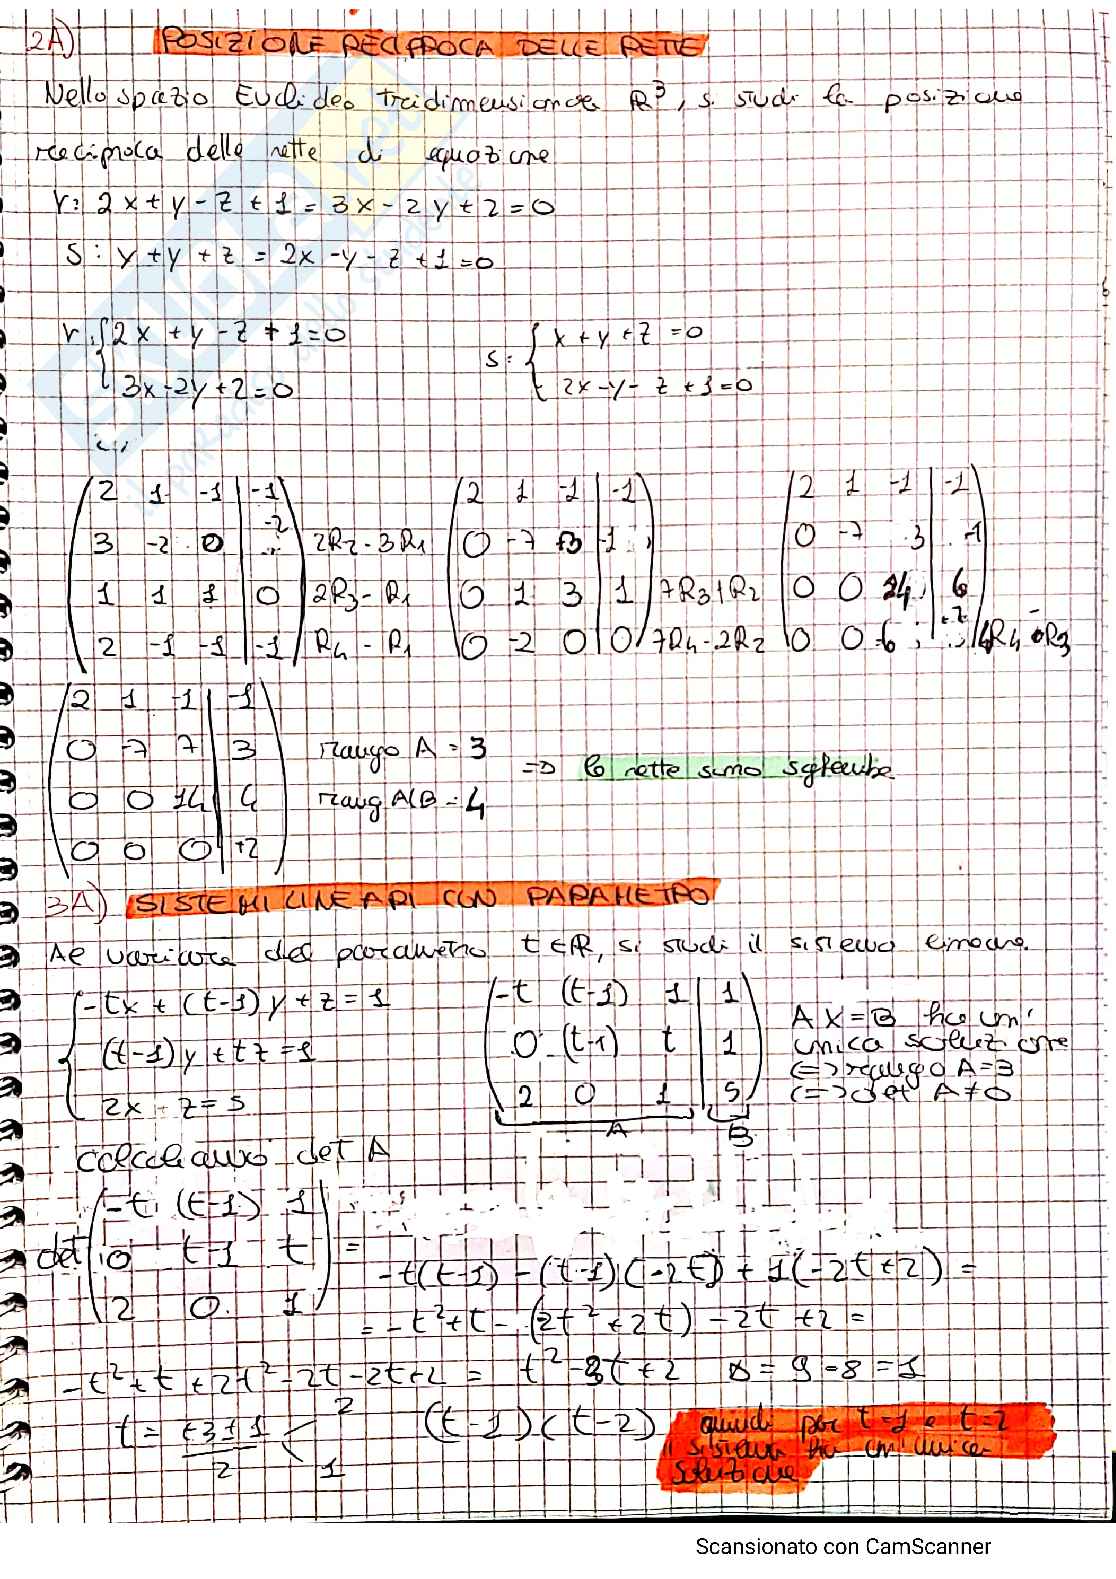 2A) POSIZIONE RECIPROCA DELLE RETTE
Nello spazio Euclideo tridimensionale R³, si studi la posizione
reciproca delle rette di equazione
r: 2x + y - z + 1 = 3x - 2y + 2 = 0
S: y + y + z = 2x - y - z + 1 = 0
r: { 2x + y - z + 1 = 0
3x - 2y + 2 = 0
S: { x + y + z = 0
2x - y - z + 1 = 0
2 1 -1 | -1
3 -2 0 | -2 2R2 - 3R1
1 1 1 | 0 2R3 - R1
2 -1 -1 | -1 R4 - R1
2 1 -1 | -1
0 -7 +3 | -1
0 1 3 | 1 7R3 + R2
0 -2 0 | 0 7R4 - 2R2
2 1 -1 | -1
0 -7 3 | -1
0 0 24 | 6
0 0 -6 | +2 4R4 - R3
2 1 -1 | -1
0 -7 7 | 3 rango A = 3
0 0 14 | 4 rang A|B = 4
0 0 0 | +2
=> le rette sono sghembe
3A) SISTEMI LINEARI CON PARAMETRO
Al variare del parametro t ∈ R, si studi il sistema lineare
{ -tx + (t-1)y + z = 1
(t-1)y + tz = 1
2x - z = 5
-t (t-1) 1 | 1
0 (t-1) t | 1
2 0 1 | 5
A B
AX = B ha un'
unica soluzione
<=> rango A = 3
<=> det A ≠ 0
calcoliamo det A
det ( -t (t-1) 1
0 t-1 t
2 0 1 ) =
-t(t-1) - (t-1)(-2t) + 1(-2t+2) =
= -t² + t - (2t² + 2t) - 2t + 2 =
-t² + t + 2t² - 2t - 2t + 2 = t² - 3t + 2 Δ = 9 - 8 = 1
t = +3 ± 1 / 2 < 2
1
(t-1)(t-2)
quindi per t=1 e t=2
il sistema ha un'unica
soluzione
Scansionato con CamScanner